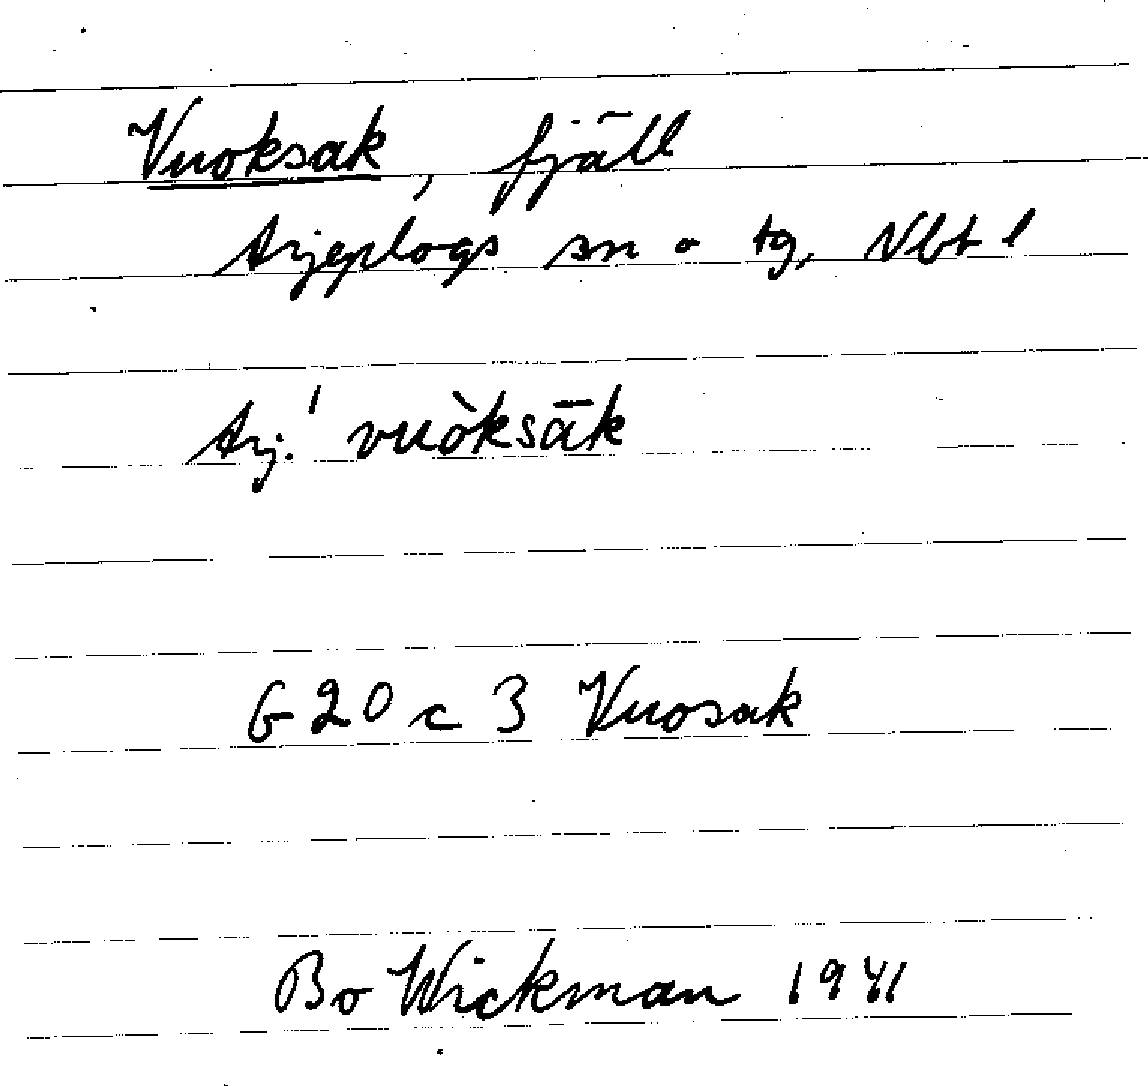 Vuoksak, fjäll
Arjeplogs sn o tg, Nbt l
Arj. ˈvuòksāk
G 20 c 3 Vuosak
Bo Wickman 1941